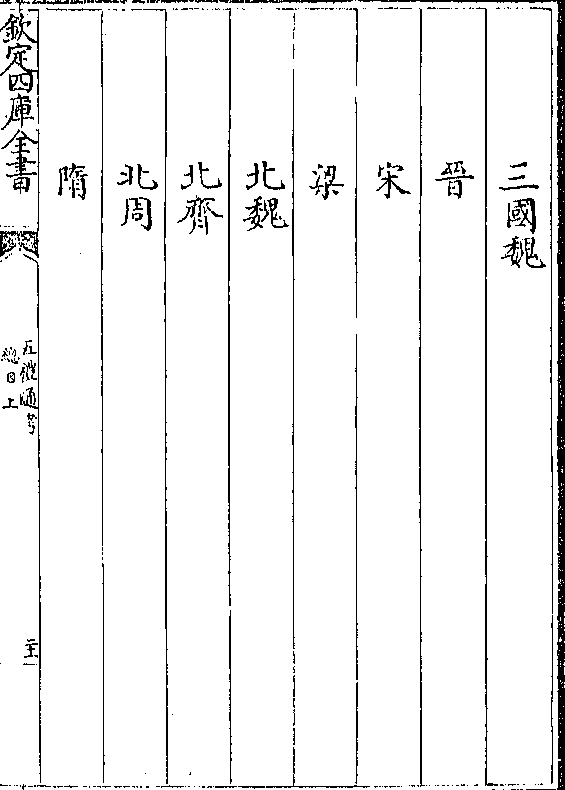 三國魏
晉
宋
梁
北魏
北齊
北周
隋
欽定四庫全書
五禮通考
總目上